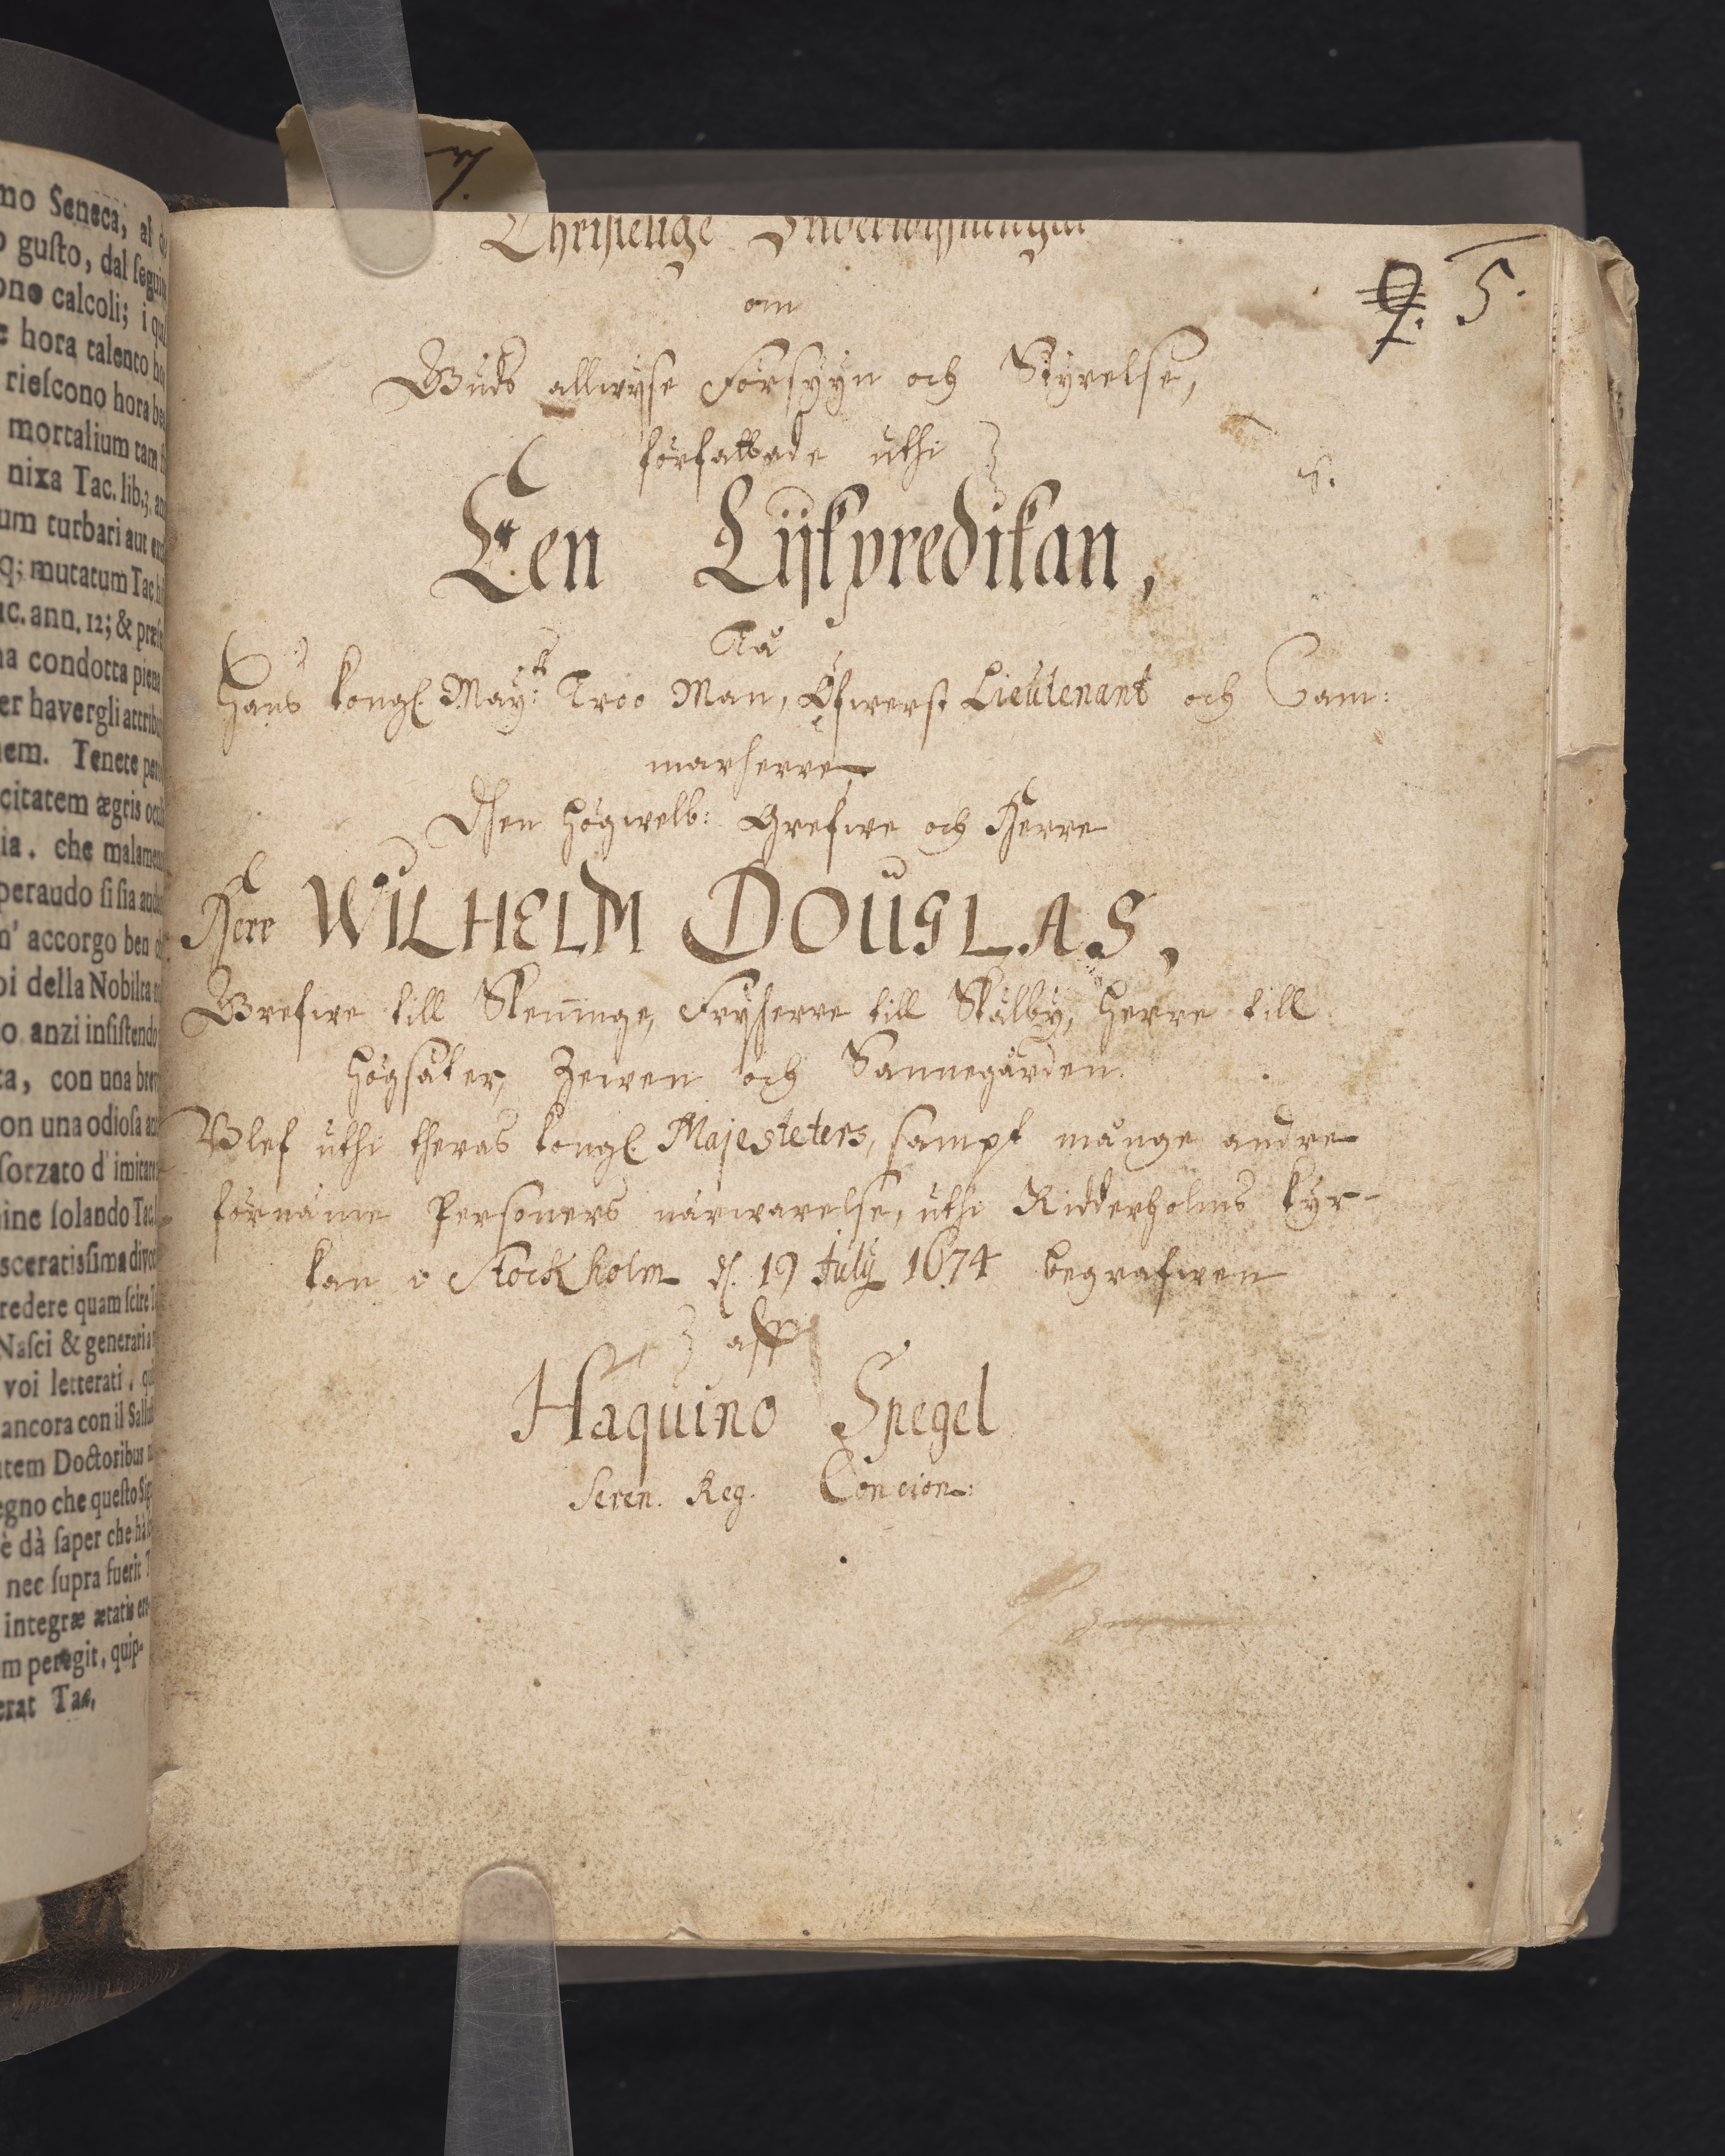 mo Seneca, al
o gusto, dal seguir
ono calcoli; i qua
e hora talento ho
riescono hora be
mortalium tam
nixa Tac. lib.3. an
um turbari aut
q; mutatum Tac. hi
uc. ann. 12; & præ
na condotta piena
er havergli attribu
nem. Tenete
citatem ægris ocu
ia. che malamen
peraudo si sia anda
n' accorgo ben
oi della Nobilta
o anzi insistendo
ta, con una brev
on una odiosa
sorzato d' imitare
ine solando Tac.
sceratissima divot
redere quam scire
Nasci & generari a
voi letterati. qui
ancora con il Sallust
tem Doctoribus
egno che questo Sig
è dà saper che hà
nec supra fuerit
integræ ætatis
m peregit, quip-
erat Tac,
Christelige Underwijsningar
om
Gudz allwyse Försyyn och Styrelse,
författade uthi
Een Lijkpredikan,
Tå
Hans kongl. May:tz Troo Man, Öfwerst Lieutenant och Cam:
marherre
Then Högwelb: Grefwe och Herre
Herr WILHELM DOUGLAS,
Grefwe till Skenninge, Fryherre till Skälby, Herre till
Högsäter, Zewen och Sannegården.
Blef uthi theras kongl. Majesteters, sampt månge andre
förnäme Personers närwarelse, uthi Ridderholms kyr-
kan i Stockholm d. 19 July 1674 begrafwen
aff
Haquino Spegel
Seren. Reg. Concion:
9. 5.